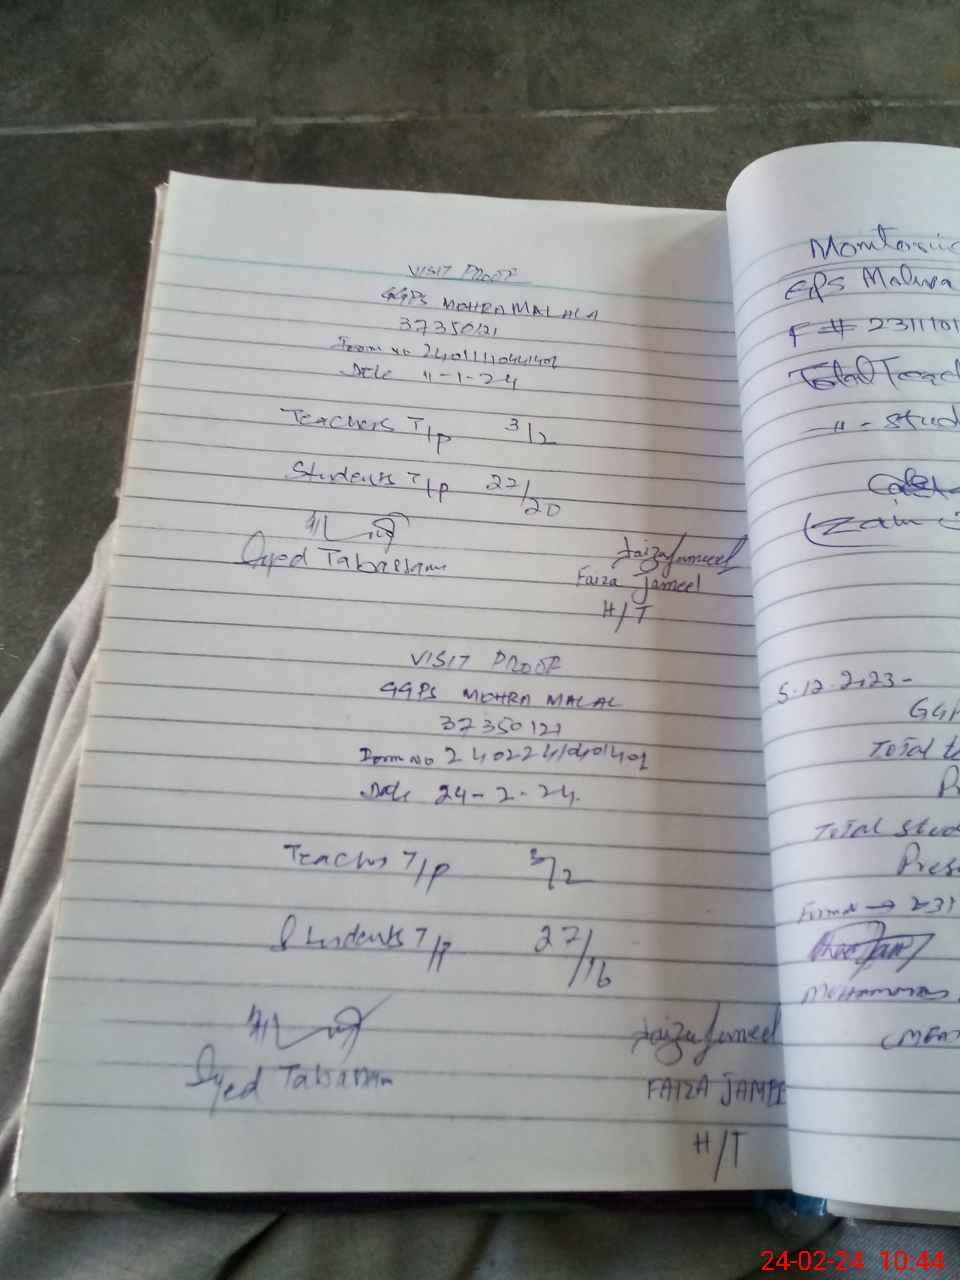 VISIT PROOF
GGPS MOHRA MALALA
37350121
Form No 2401111041401
Date 11-1-24
Teachers T/P 3/2
Students T/P 27/20
Syed Tabassam
Faiza Jameel
Faiza Jameel
H/T
VISIT PROOF
GGPS MOHRA MALAL
37350121
Form No
Date 24-2-24.
Teachs T/P 3/2
Students T/P 27/16
Syed Tabassam
Faiza Jameel
FAIZA JAMEE
H/T
Monitorin
GPS
F# 2311101
Total Teach
-"- Stud
5.12.2023-
GGP
Total t
Pr
Total Stud
Pres
→ 231
24-02-24 10:44